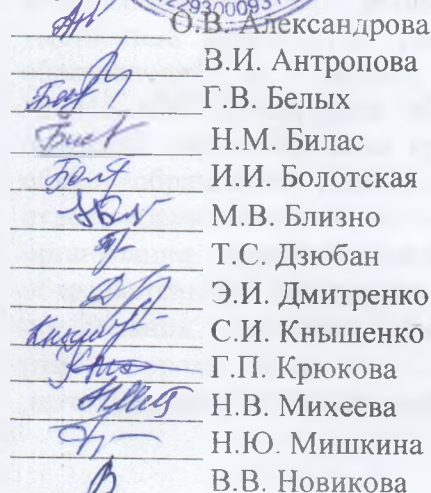 О.В. Александрова
В.И. Антропова
Г.В. Белых
Н.М. Билас
И.И. Болотская
М.В. Близно
Т.С. Дзюбан
Э.И. Дмитренко
С.И. Кнышенко
Г.П. Крюкова
Н.В. Михеева
Н.Ю. Мишкина
В.В. Новикова